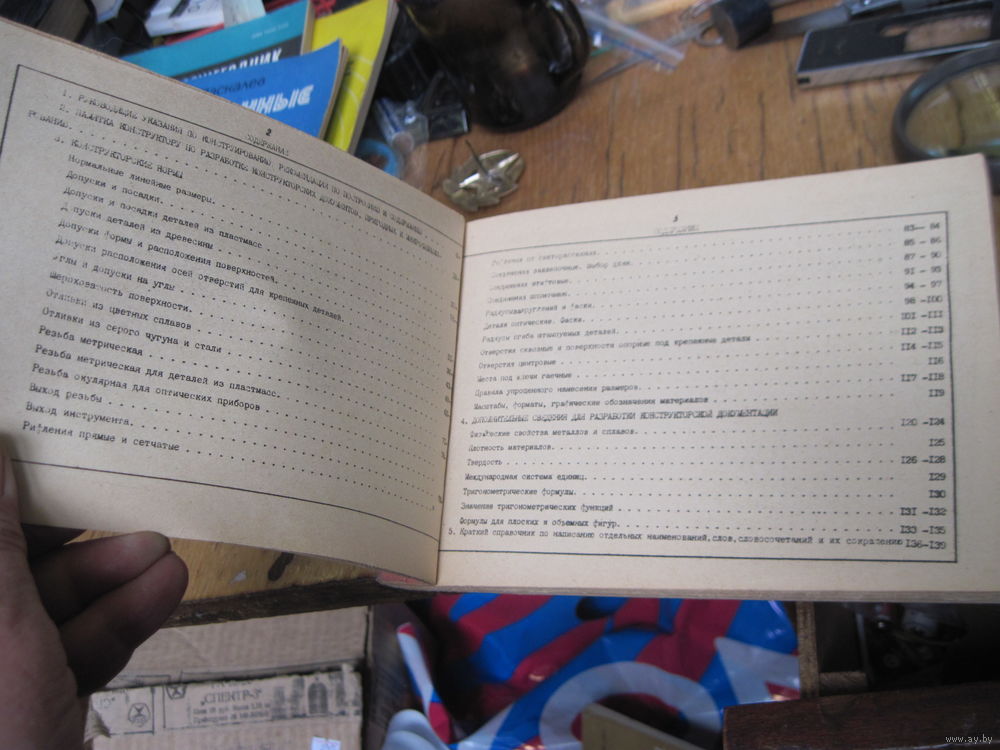 2
СОДЕРЖАНИЕ
1. РУКОВОДЯЩИЕ УКАЗАНИЯ ПО КОНСТРУИРОВАНИЮ. РЕКОМЕНДАЦИИ ПО ПОСТРОЕНИЮ И СОДЕРЖАНИЮ
2. ПАМЯТКА КОНСТРУКТОРУ ПО РАЗРАБОТКЕ КОНСТРУКТОРСКИХ ДОКУМЕНТОВ, ПРИГОДНЫХ К МИКРОФИЛЬМИ-
РОВАНИЮ.
3. КОНСТРУКТОРСКИЕ НОРМЫ
Нормальные линейные размеры.
Допуски и посадки.
Допуски и посадки деталей из пластмасс
Допуски деталей из древесины
Допуски формы и расположения поверхностей.
Допуски расположения осей отверстий для крепежных деталей.
Углы и допуски на углы
Шероховатость поверхности.
Отливки из цветных сплавов
Отливки из серого чугуна и стали
Резьба метрическая
Резьба метрическая для деталей из пластмасс.
Резьба окулярная для оптических приборов
Выход резьбы
Выход инструмента.
Рифления прямые и сетчатые
3
83— 84
Соединения заклепочные. Выбор длин. 85 - 86
Соединения штифтовые. 87 - 90
Соединения шпоночные. 91 - 93
Радиусы закруглений и фаски. 94 - 97
Детали оптические. Фаски. 98 -I00
Радиусы сгиба штампуемых деталей. I0I -III
Отверстия сквозные и поверхности опорные под крепежные детали II2 -II3
Отверстия центровые II4 -II5
Места под ключи гаечные II6
Правила упрощенного нанесения размеров. II7 -II8
Масштабы, форматы, графические обозначения материалов II9
4. ДОПОЛНИТЕЛЬНЫЕ СВЕДЕНИЯ ДЛЯ РАЗРАБОТКИ КОНСТРУКТОРСКОЙ ДОКУМЕНТАЦИИ
Физические свойства металлов и сплавов. I20 -I24
Плотность материалов. I25
Твердость I26 -I28
Международная система единиц. I29
Тригонометрические формулы. I30
Значение тригонометрических функций I3I -I32
Формулы для плоских и объемных фигур. I33 -I35
5. Краткий справочник по написанию отдельных наименований, слов, словосочетаний и их сокращению I36-I39
"СПЕКТР-3"
www.ay.by